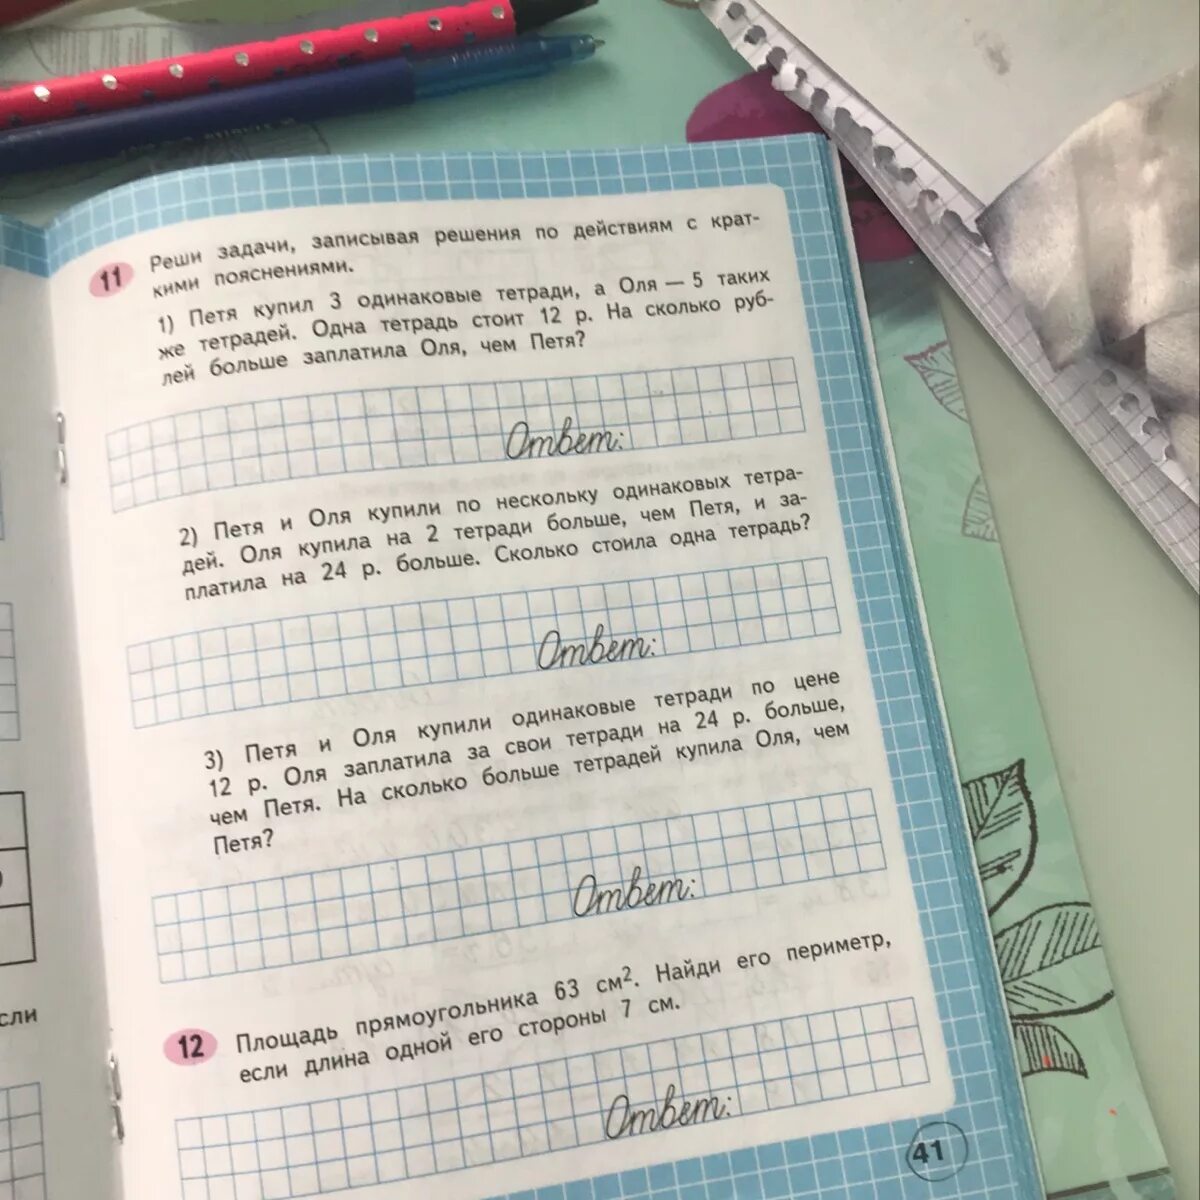 11
Реши задачи, записывая решения по действиям с крат-
кими пояснениями.
1) Петя купил 3 одинаковые тетради, а Оля — 5 таких
же тетрадей. Одна тетрадь стоит 12 р. На сколько руб-
лей больше заплатила Оля, чем Петя?
Ответ:
2) Петя и Оля купили по нескольку одинаковых тетра-
дей. Оля купила на 2 тетради больше, чем Петя, и за-
платила на 24 р. больше. Сколько стоила одна тетрадь?
Ответ:
3) Петя и Оля купили одинаковые тетради по цене
12 р. Оля заплатила за свои тетради на 24 р. больше,
чем Петя. На сколько больше тетрадей купила Оля, чем
Петя?
Ответ:
12
Площадь прямоугольника 63 см². Найди его периметр,
если длина одной его стороны 7 см.
Ответ:
41
сли